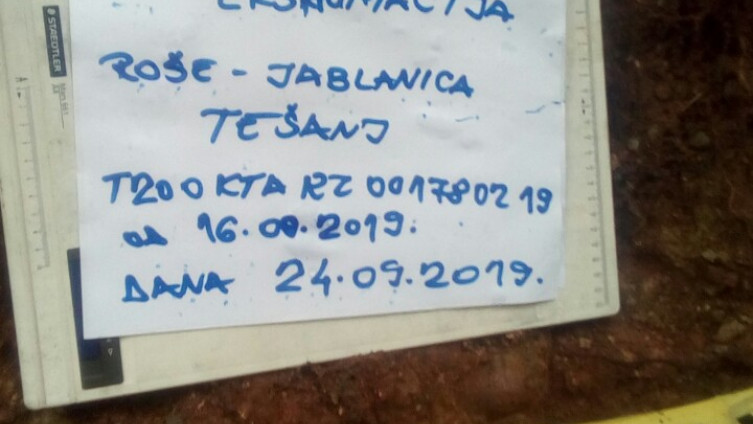 EKSHUMACIJA
ROŠE - JABLANICA
TEŠANJ
T20 0 KTA RZ 0017802 19
od 16.09.2019.
DANA 24.09.2019.
STAEDTLER
A